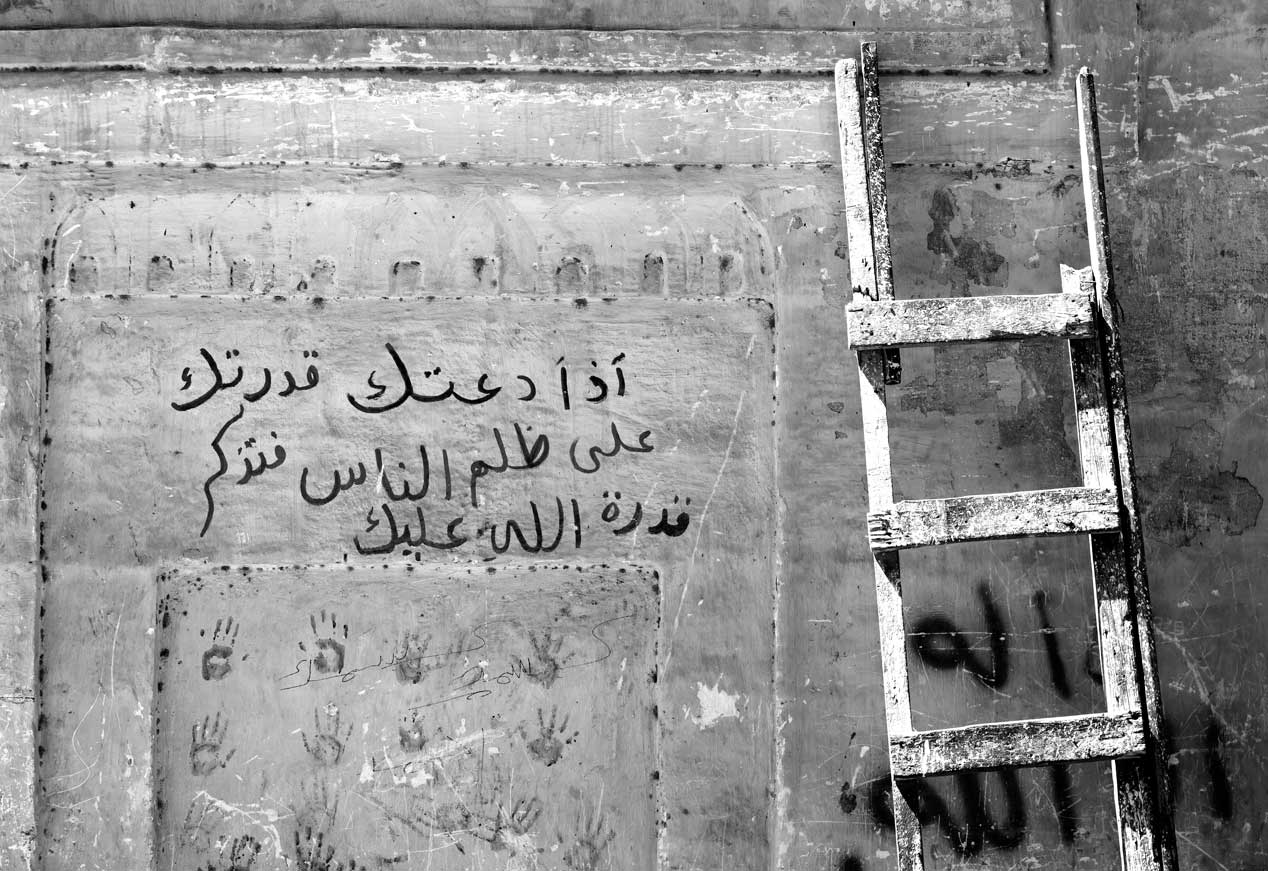 أذأ دعتك قدرتك
على ظلم الناس فتذكر
قدرة الله عليك
الله